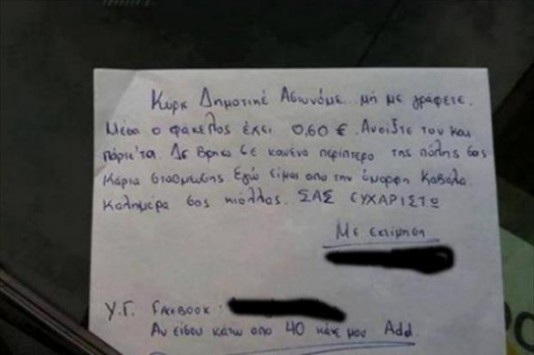 Κύριε Δημοτικέ Αστυνόμε... μή με γράφετε.
Μέσα ο φάκελος έχει 0,60 €. Ανοίξτε τον και
πάρτε'τα. Δε βρήκα σε κανένα περίπτερο της πόλης σας
Κάρτα στάθμευσης Εγώ είμαι από την όμορφη Καβάλα.
Καλημέρα σας κιόλλας. ΣΑΣ ΕΥΧΑΡΙΣΤΩ
Με εκτίμηση
Υ.Γ. Facebook:
Αν είσαι κάτω από 40 κάνε μου Add.